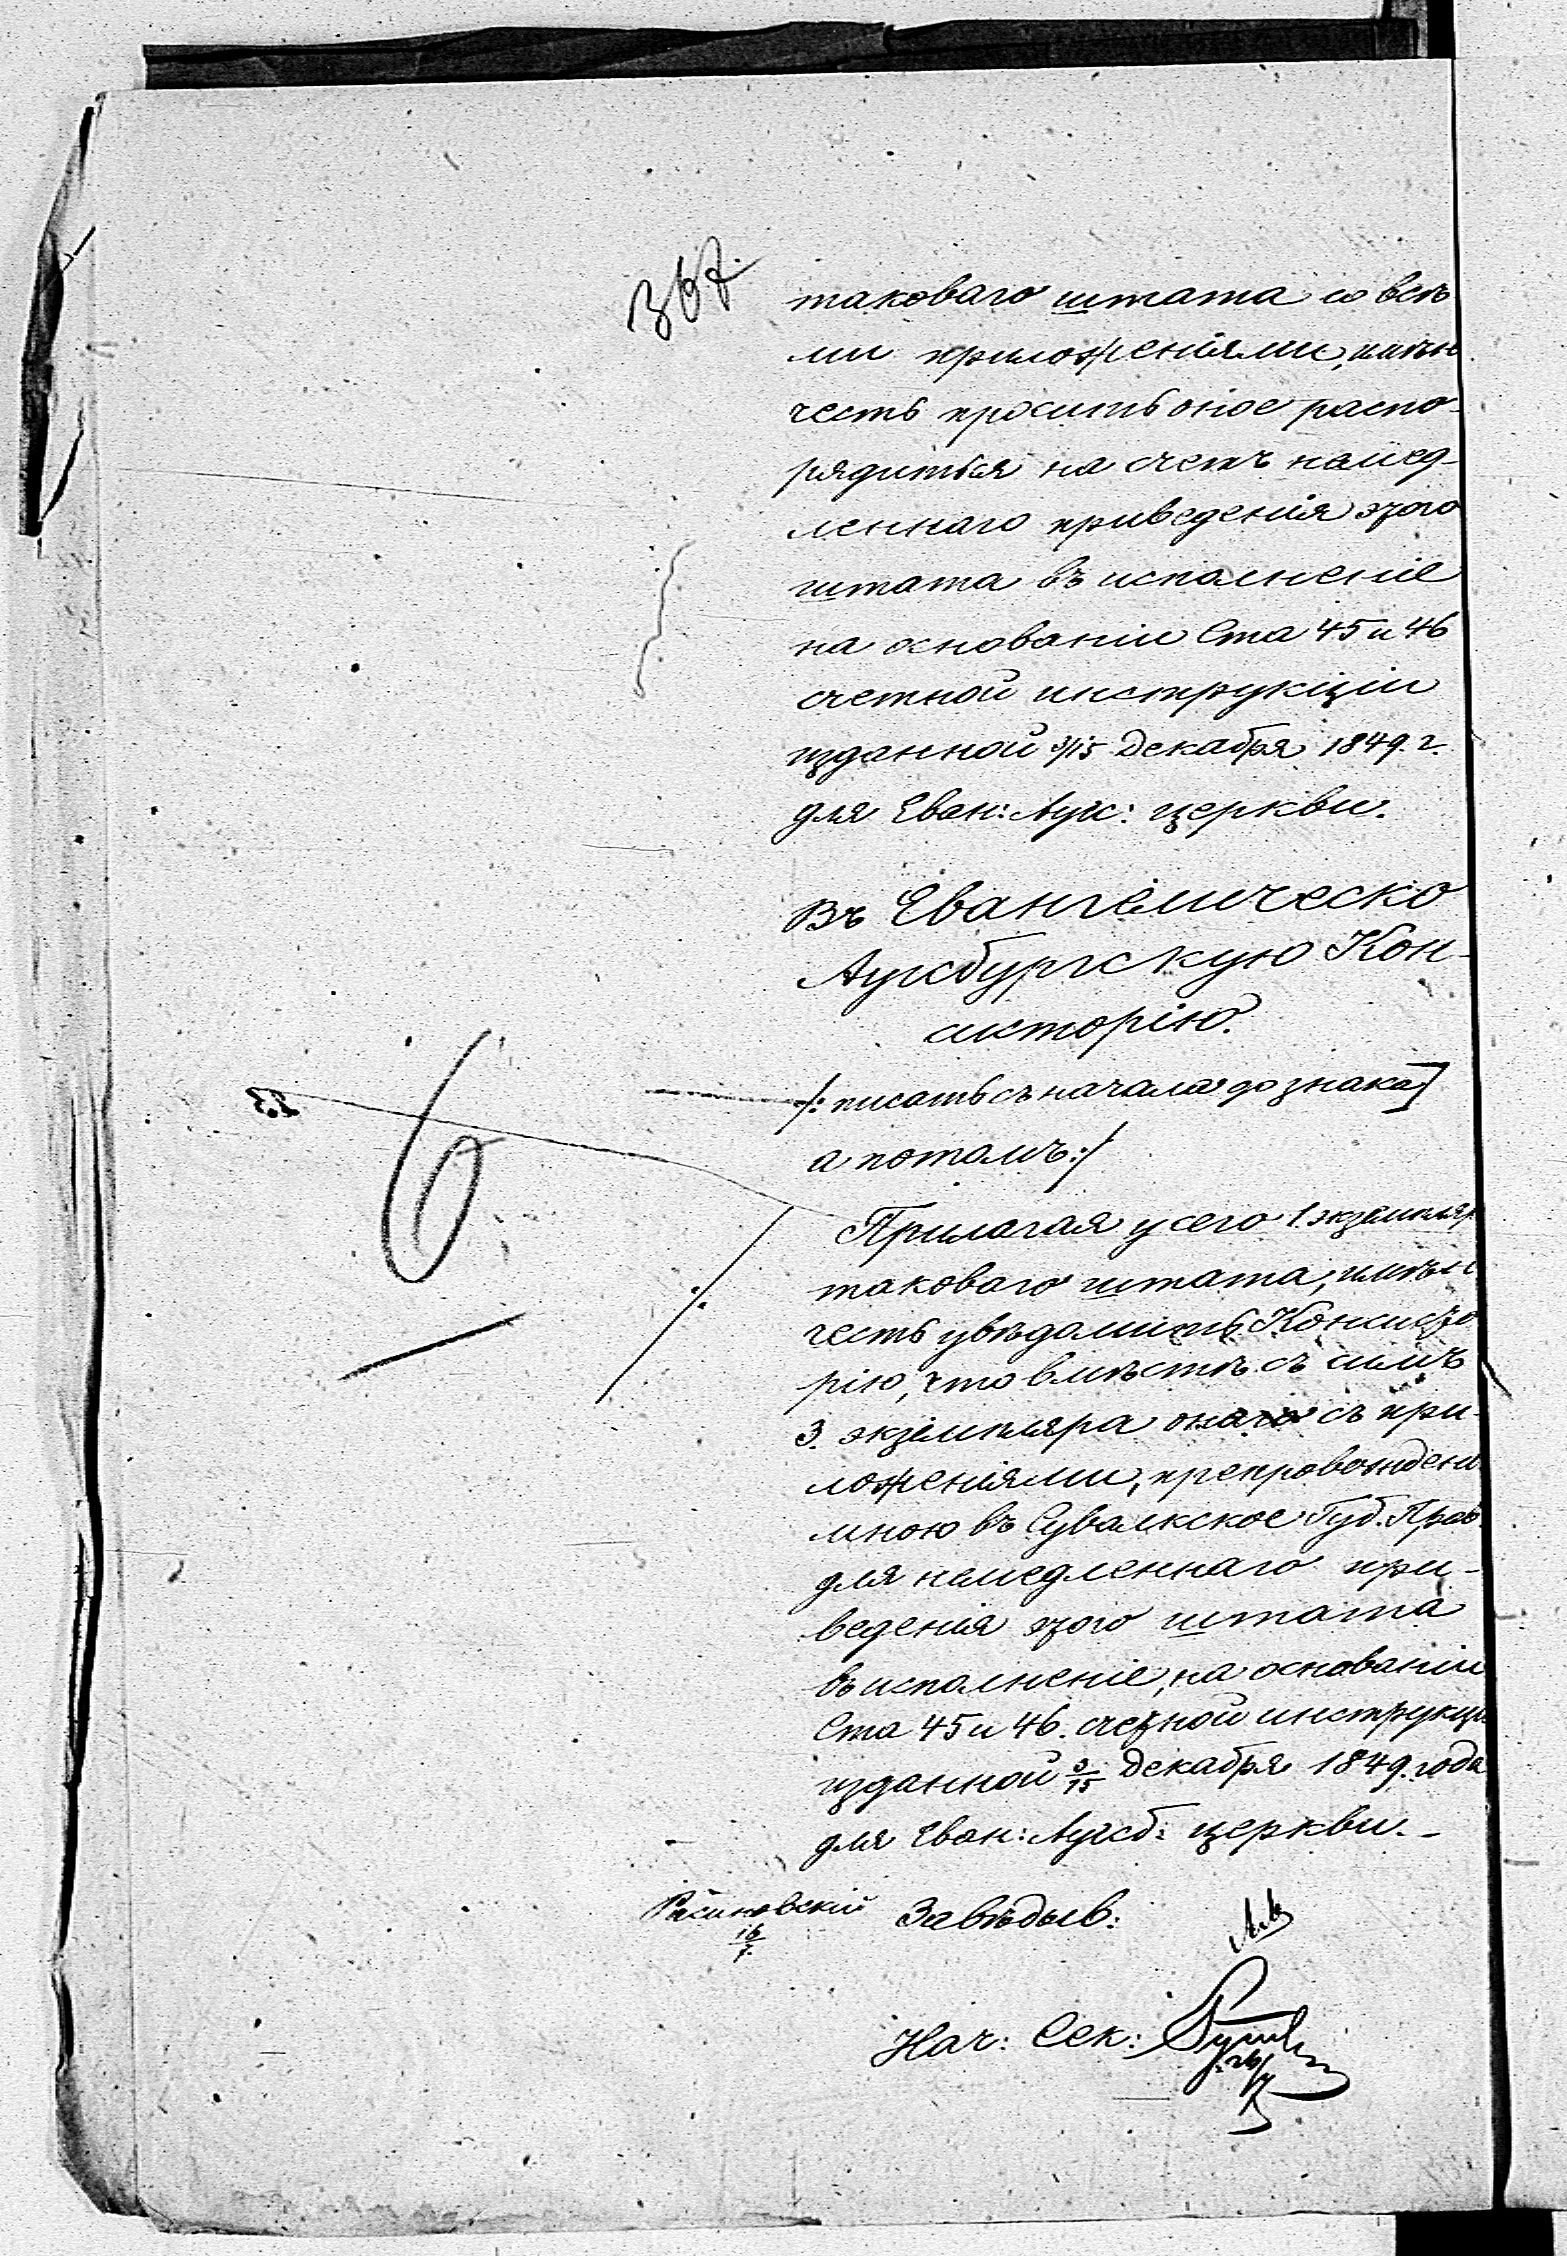 367.
таковаго штата со всѣ
ми приложеніями, имѣю
честь просить оное распо-
рядиться на счетъ немед-
леннаго приведенія этого
штата въ исполненіе
на основаніи Ста 45 и 46
счетной инструкціи
изданной 3/15 Декабря 1849. г.
для Еван: Аугс: церкви.
Въ Евангелическо
Аугсбургскую Кон-
систорію.
/: писать съ начала до знака]
а потомъ:/
Прилагая у сего 1. экземпляр
таковаго штата, имѣю
честь увѣдомить Консисто
рію, что вмѣстѣ съ симъ
3. экземпляра онаго съ при-
ложеніями, препровождены
мною въ Сувалкское Губ. Прав.
для немедленнаго при-
веденія этого штата
въ исполненіе, на основаніи
Ста 45 и 46. счетной инструкціи
изданной 3/15 Декабря 1849. года
для Еван: Аугсб: церкви. -
16/7.
Завѣдыв:
Нач: Сек:
26/7